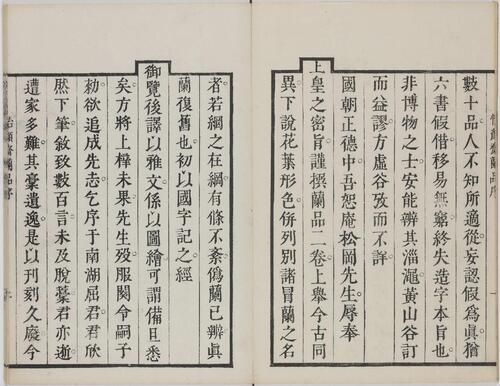 數十品人不知所適從妄認假爲眞猶
六書假借移易無窮終失造字本旨也
非博物之士安能辨其淄澠黄山谷訂
而益謬方虛谷攷而不詳
國朝正德中吾恕庵松岡先生辱奉
上皇之密旨謹撰蘭品二卷上舉今古同
異下說花葉形色併列別諸冒蘭之名
者若綱之在綱有條不紊僞蘭已辨眞
蘭復舊也初以國字記之經
御覽後譯以雅文係以圖繪可謂備且悉
矣方將上梓未果先生歿服闋令嗣子
勑欲追成先志乞序于南湖屈君君欣
然下筆敘致數百言未及脫藁君亦逝
遭家多難其稾遺逸是以刊刻久廢今